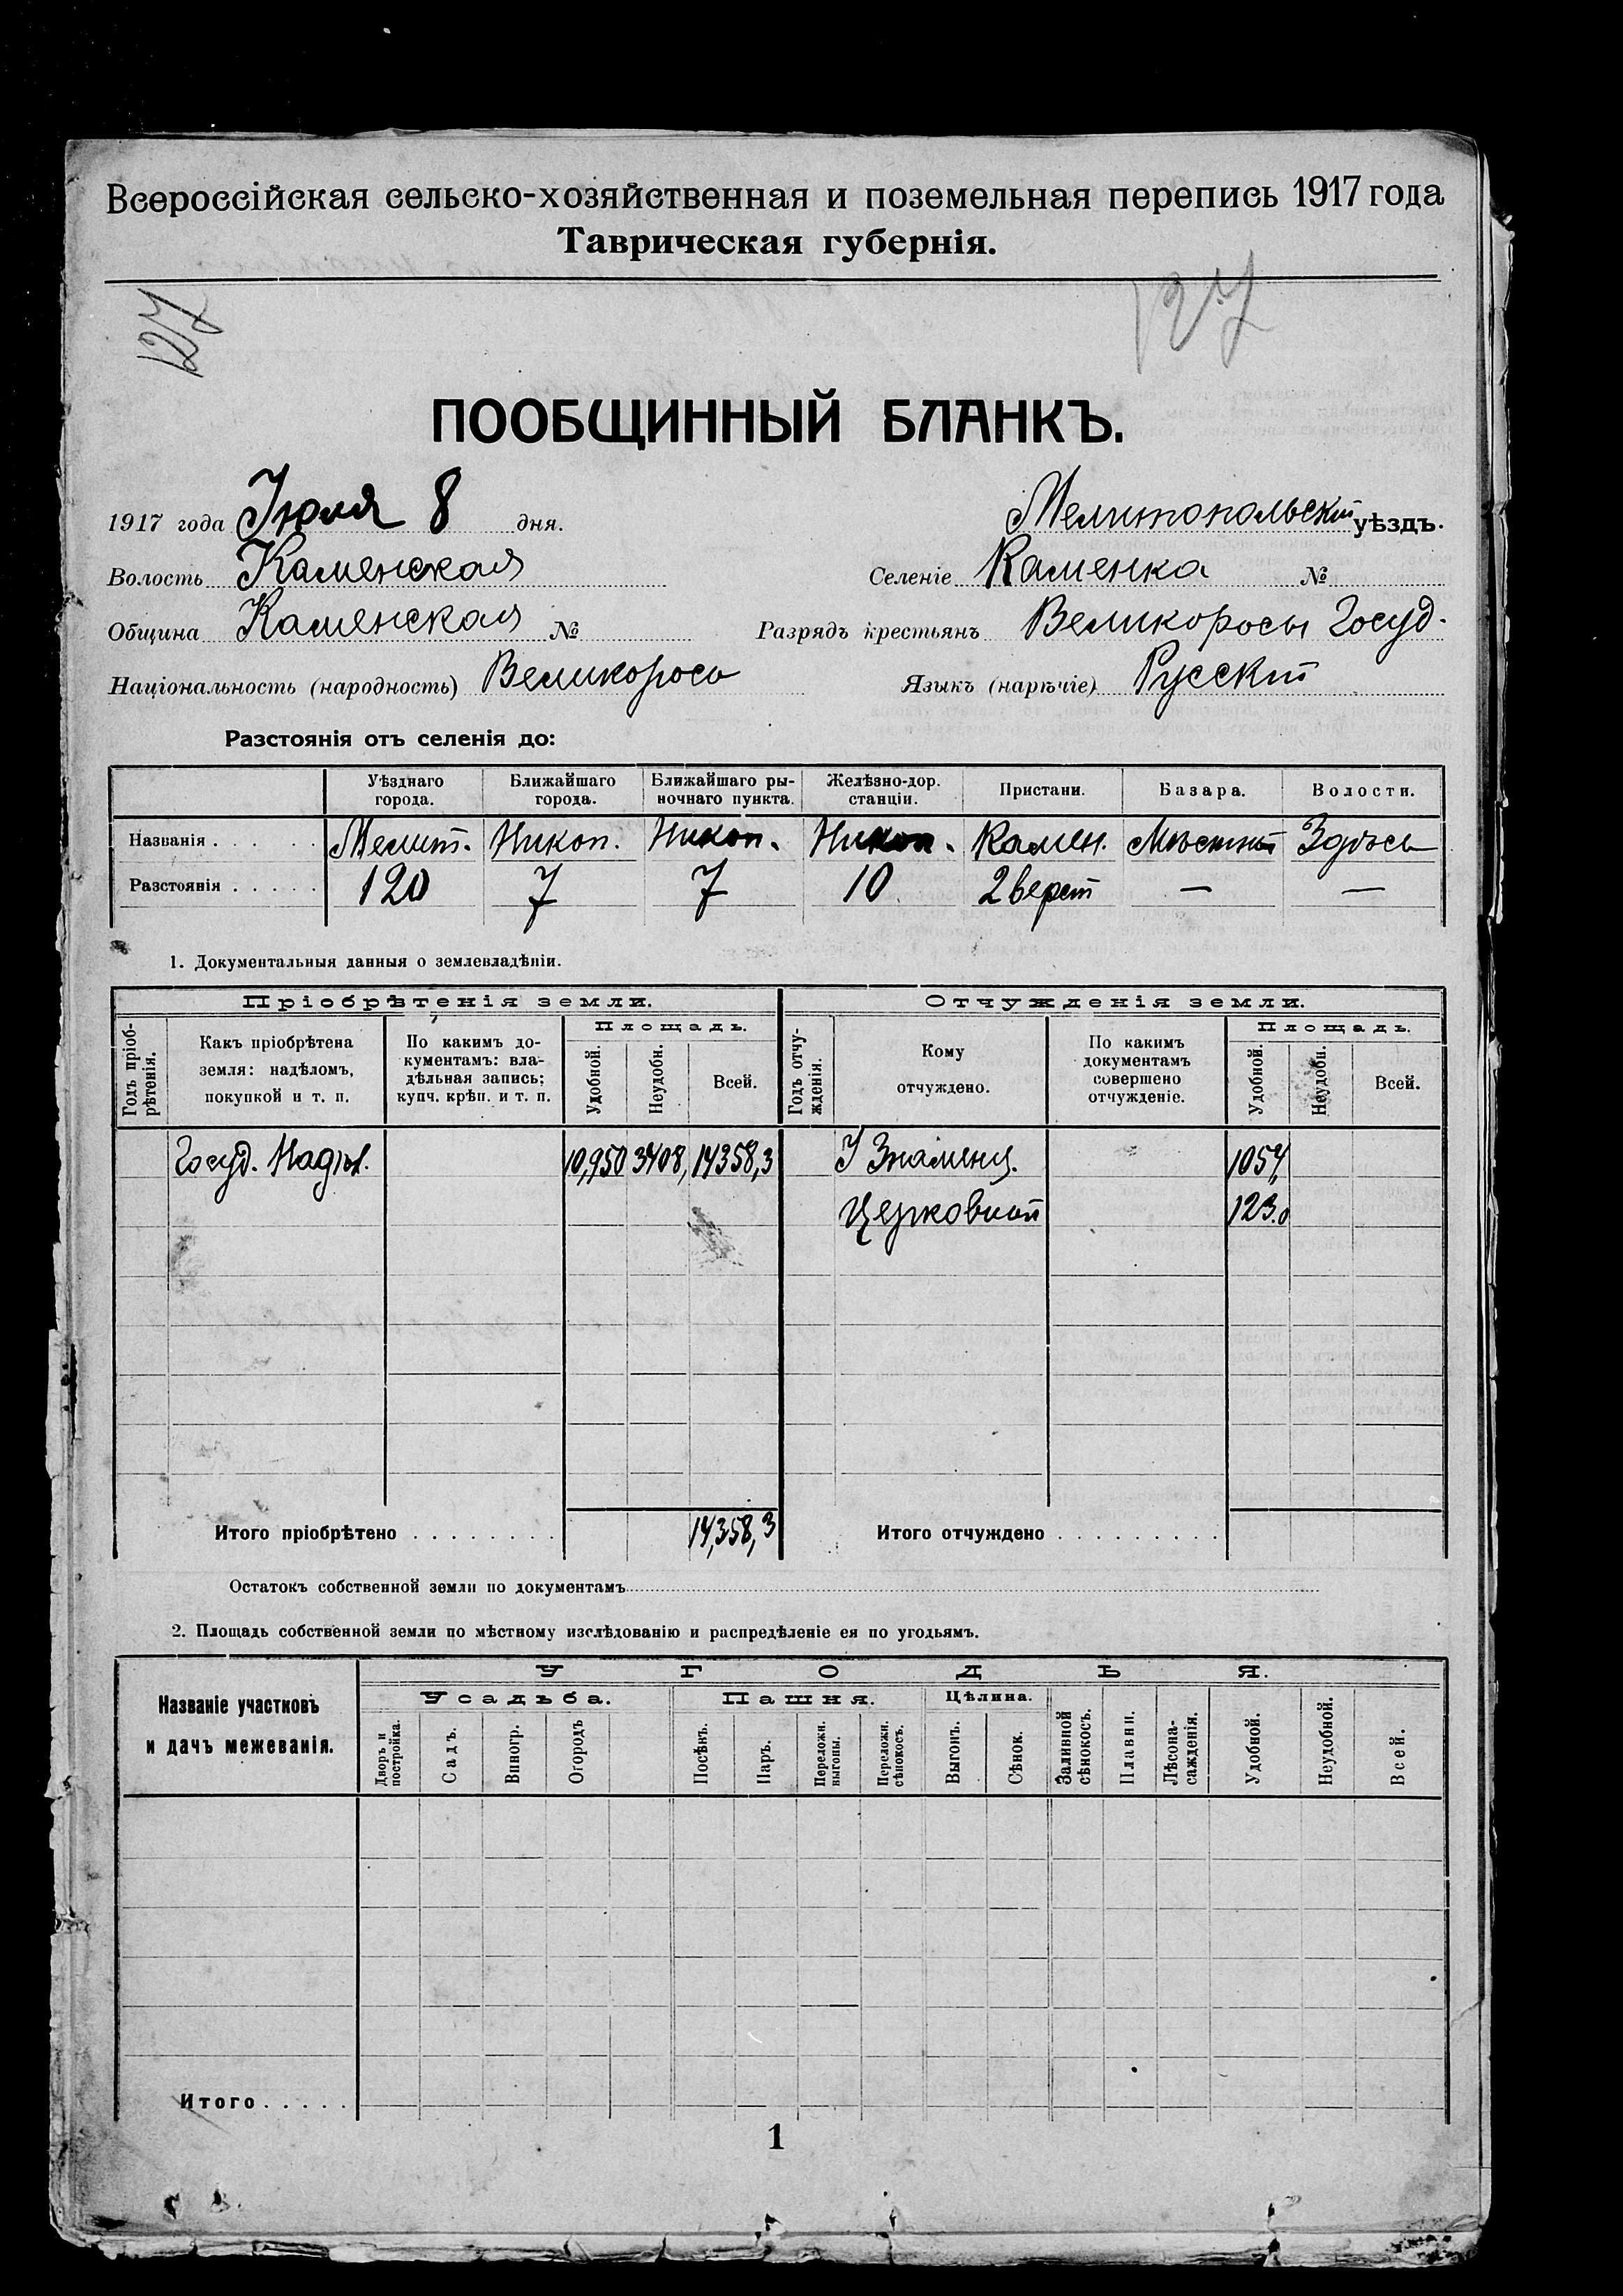 Всероссійская сельско-хозяйственная и поземельная перепись 1917 года
Таврическая губернія.
127
127
ПООБЩИННЫЙ БЛАНКЪ.
1917 года Іюля 8 дня. Мелитопольскій уѣздъ.
Волость Каменская Селеніе Каменка №
Община Каменская № Разрядъ крестьянъ Великоросы Госуд.
Національность (народность) Великоросы Языкъ (нарѣчіе) Русскій
Разстоянія отъ селенія до:
Уѣзднаго города. Ближайшаго города. Ближайшаго рыночнаго пункта. Желѣзно-дор. станціи. Пристани. Базара. Волости.
Названія . . . . . Мелит. Никоп. Никоп. Никоп. Камен. Мѣстный Здѣсь
Разстоянія . . . . . 120 7 7 10 2 верст — —
1. Документальныя данныя о землевладѣніи.
Пріобрѣтенія земли. Отчужденія земли.
Годъ пріобрѣтенія. Какъ пріобрѣтена земля: надѣломъ, покупкой и т. п. По какимъ документамъ: владѣльная запись; купч. крѣп. и т. п. Площадь. Удобной. Неудобн. Всей. Годъ отчужденія. Кому отчуждено. По какимъ документамъ совершено отчужденіе. Площадь. Удобной. Неудобн. Всей.
Госуд. Надѣл. 10,950 3408, 14358,3 У Знаменц. 1054,
Церковной 123.0
Итого пріобрѣтено . . . . . . . . 14,358,3 Итого отчуждено . . . . . . . . . .
Остатокъ собственной земли по документамъ
2. Площадь собственной земли по мѣстному изслѣдованію и распредѣленіе ея по угодьямъ.
Названіе участковъ и дачъ межеванія. УГОДЬЯ.
Усадьба. Пашня. Цѣлина.
Дворъ и постройка. Садъ. Виногр. Огородъ Посѣвъ. Паръ. Переложн. выгоны. Переложн. сѣнокосъ. Выгонъ. Сѣнок. Заливной сѣнокосъ. Плавни. Лѣсонасажденія. Удобной. Неудобной. Всей.
Итого . . . . .
1